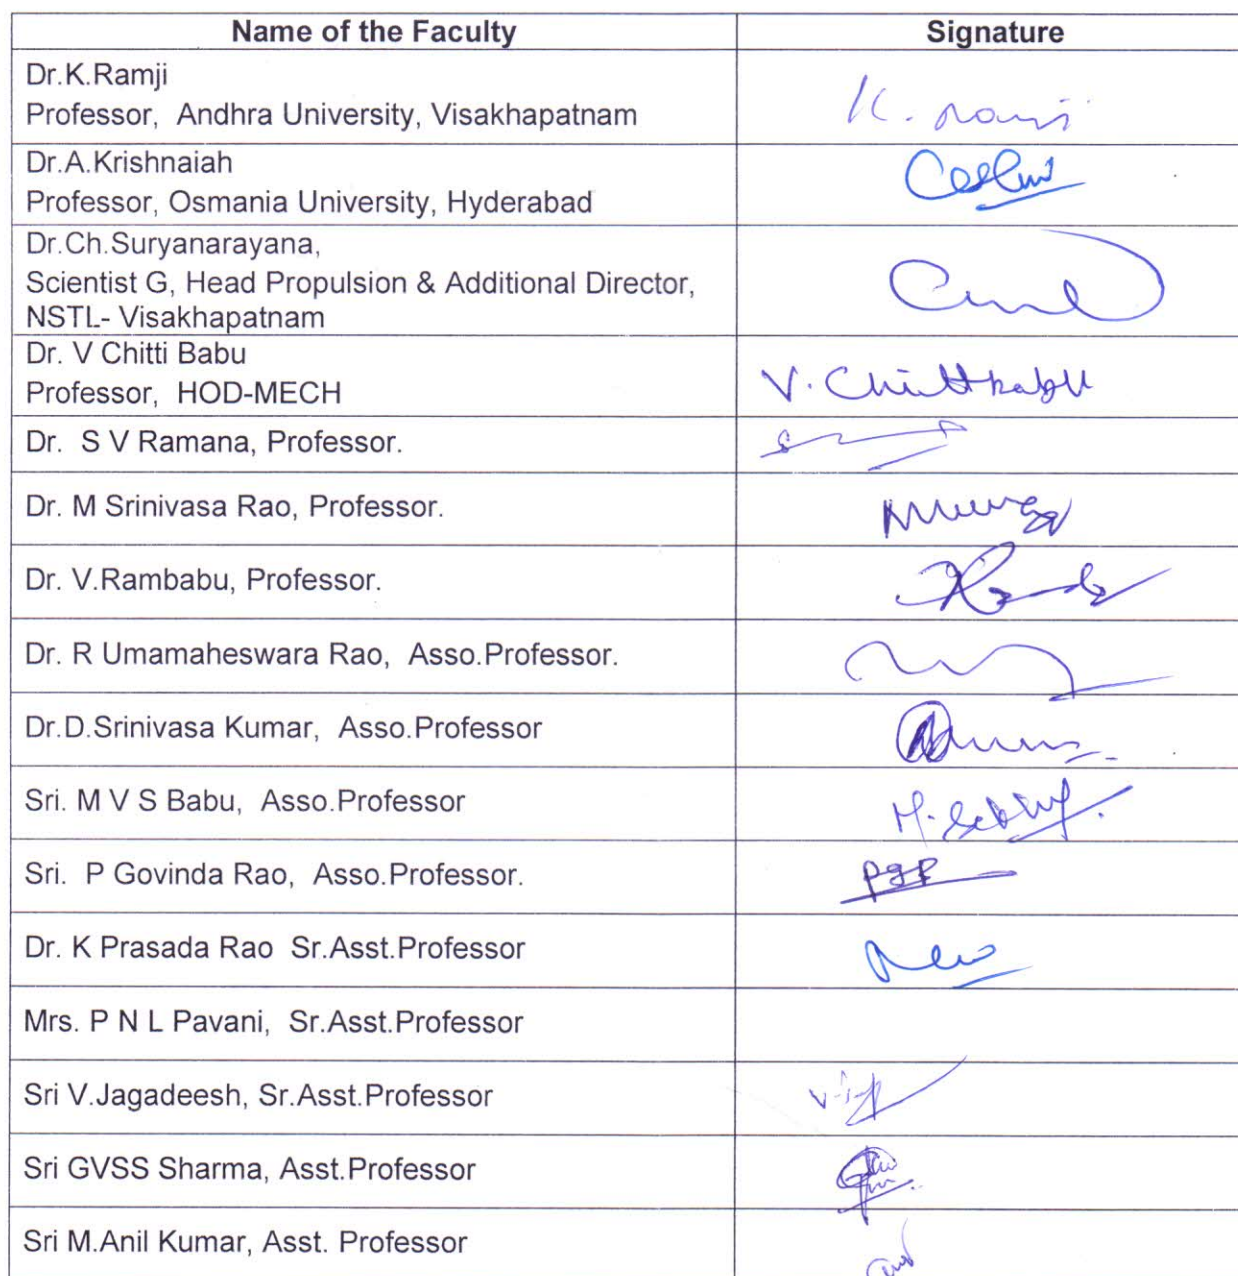 Name of the Faculty Signature
Dr.K.Ramji
Professor, Andhra University, Visakhapatnam
K. Ramji
Dr.A.Krishnaiah
Professor, Osmania University, Hyderabad
Dr.Ch.Suryanarayana,
Scientist G, Head Propulsion & Additional Director,
NSTL- Visakhapatnam
Dr. V Chitti Babu
Professor, HOD-MECH
V. Chittibabu
Dr. S V Ramana, Professor.
Dr. M Srinivasa Rao, Professor.
Dr. V.Rambabu, Professor.
Dr. R Umamaheswara Rao, Asso.Professor.
Dr.D.Srinivasa Kumar, Asso.Professor
Sri. M V S Babu, Asso.Professor
Sri. P Govinda Rao, Asso.Professor.
Dr. K Prasada Rao Sr.Asst.Professor
Mrs. P N L Pavani, Sr.Asst.Professor
Sri V.Jagadeesh, Sr.Asst.Professor
Sri GVSS Sharma, Asst.Professor
Sri M.Anil Kumar, Asst. Professor